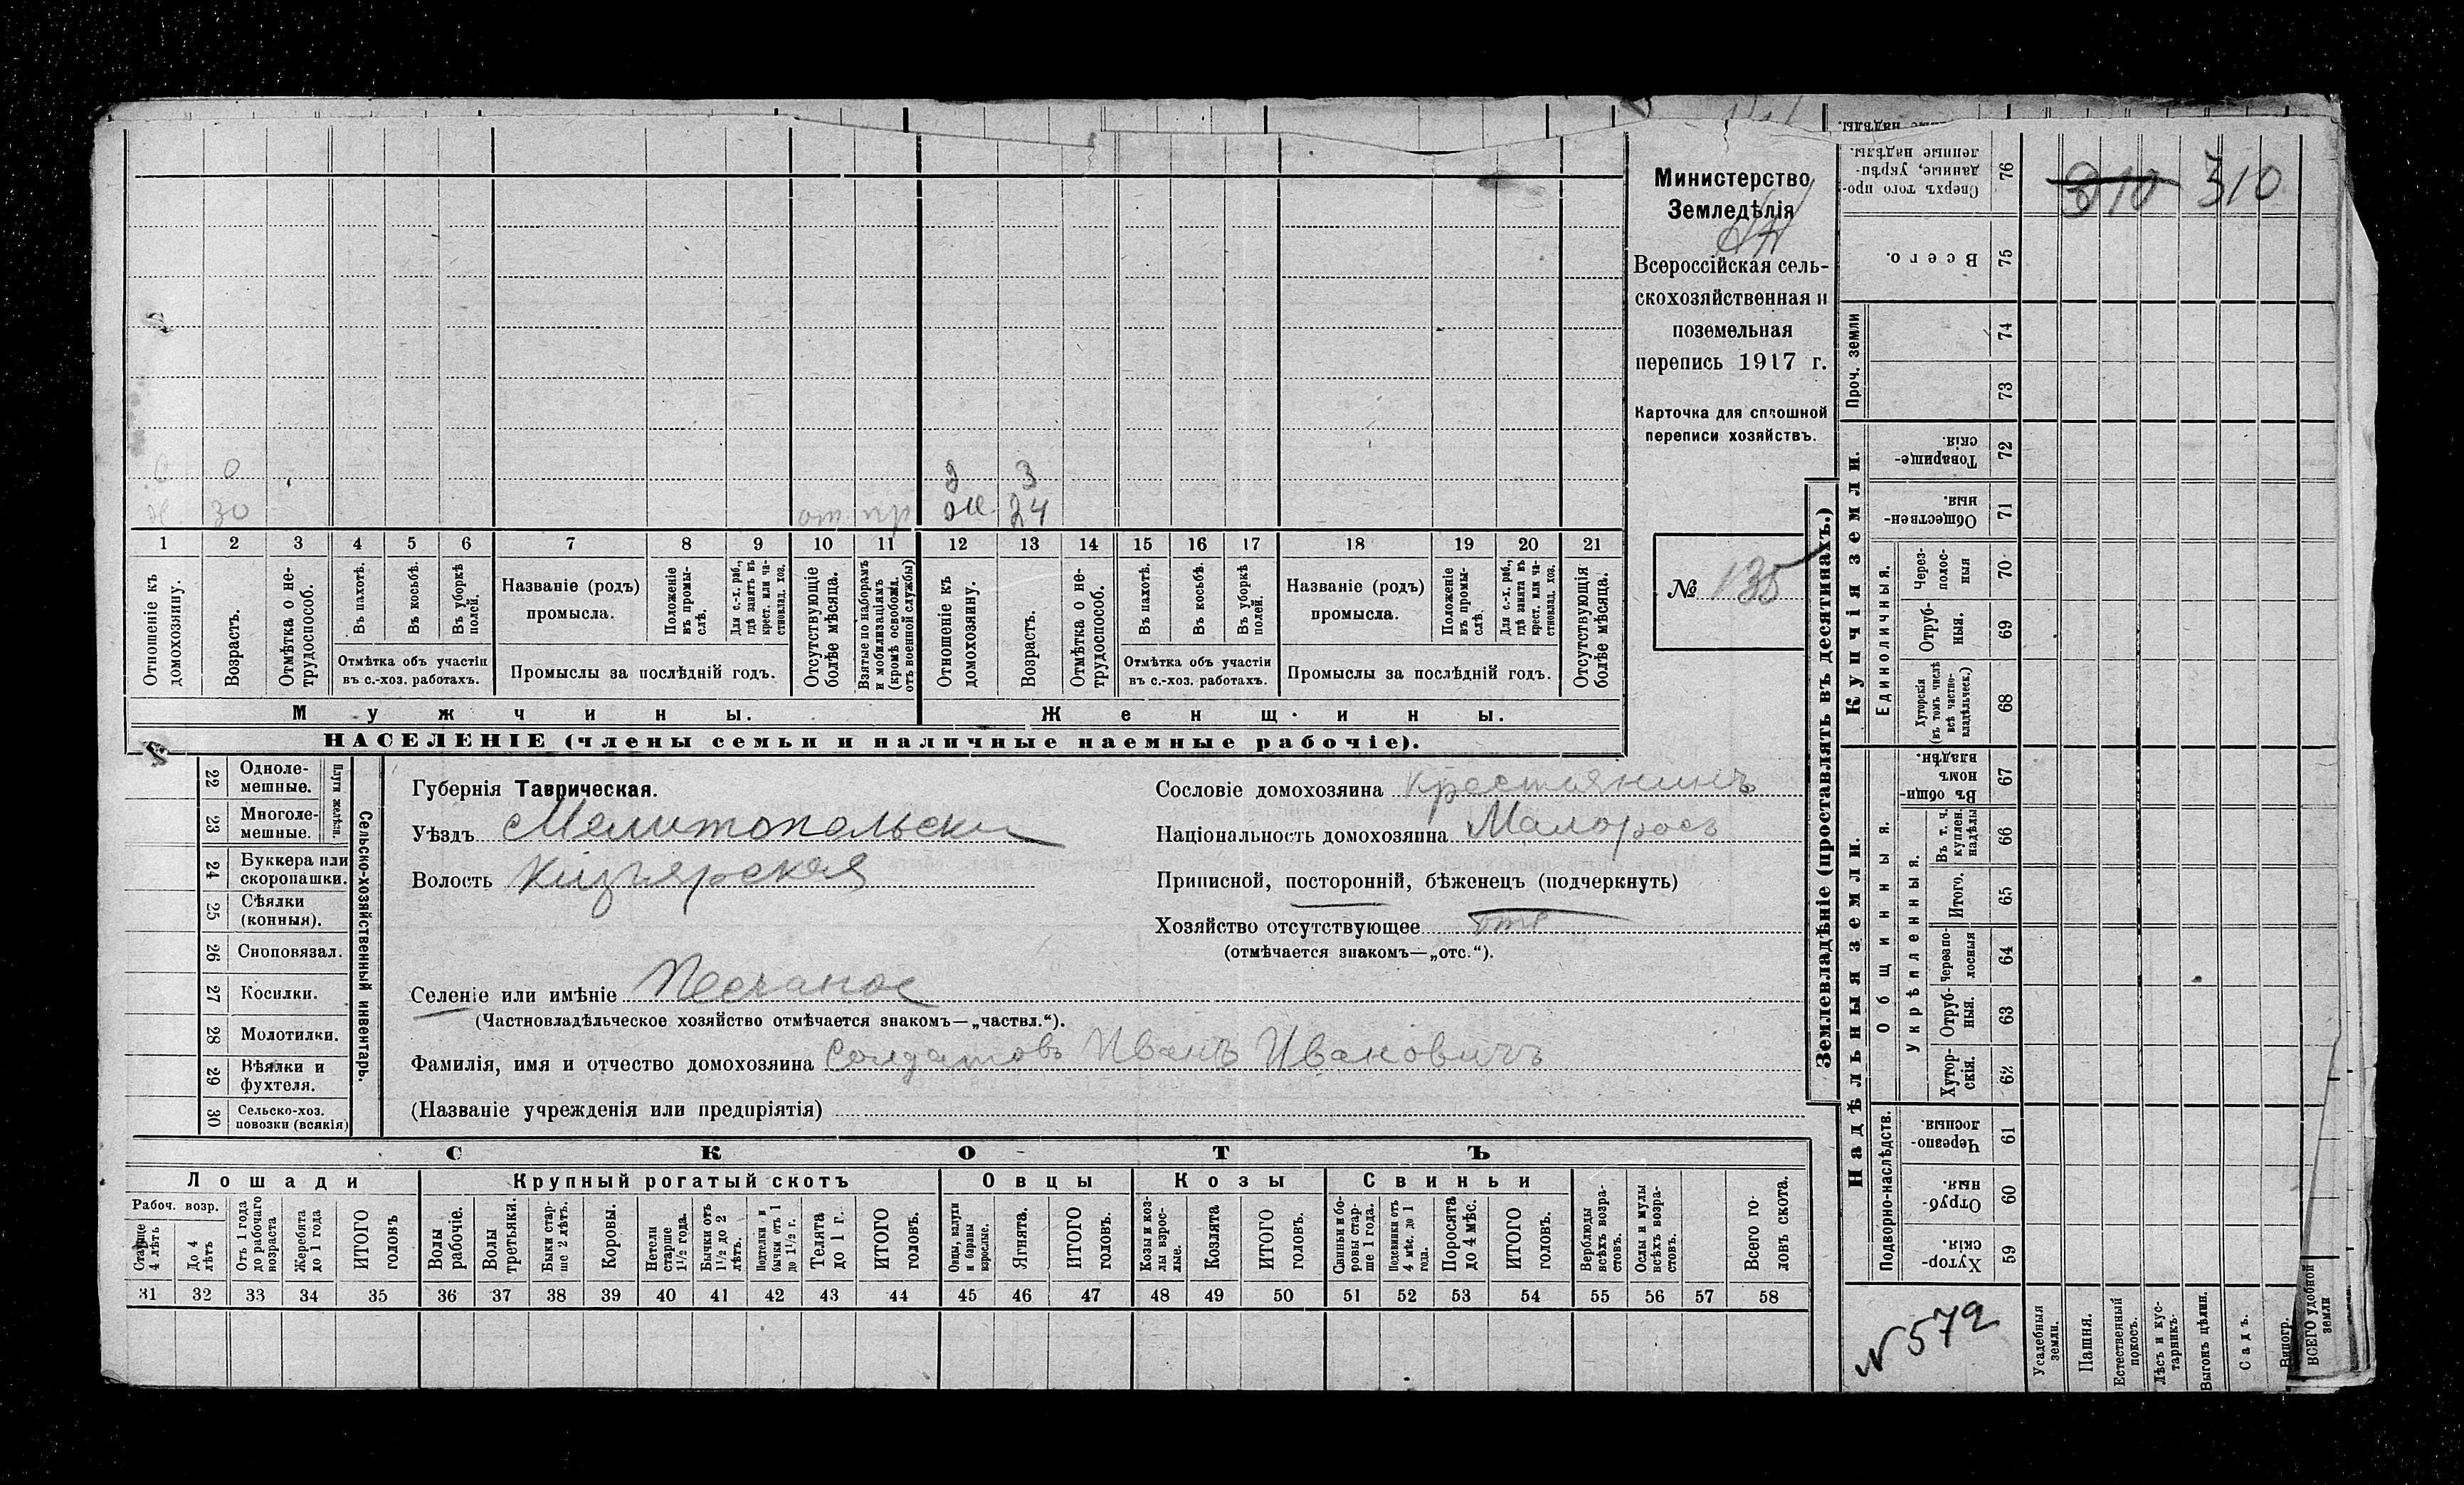 Министерство
Земледѣлія
Всероссійская сель-
скохозяйственная и
поземельная
перепись 1917 г.
Карточка для сплошной
переписи хозяйствъ.
№ 135
0 д 3
30 от пр ж 24
1 2 3 4 5 6 7 8 9 10 11 12 13 14 15 16 17 18 19 20 21
Отношеніе къ домохозяину.
Возрастъ.
Отмѣтка о не-трудоспособ.
Въ пахотѣ.
Въ косьбѣ.
Въ уборкѣ полей.
Отмѣтка объ участіи
въ с.-хоз. работахъ.
Названіе (родъ)
промысла.
Положеніе въ промы-слѣ.
Для с.-х. раб., гдѣ занятъ въ крест. или ча-стновлад. хоз.
Промыслы за послѣдній годъ.
Отсутствующіе болѣе мѣсяца.
Взятые по наборамъ и мобилизаціямъ (кромѣ освобожд. отъ военной службы)
Отношеніе къ домохозяину.
Возрастъ.
Отмѣтка о не-трудоспособ.
Въ пахотѣ.
Въ косьбѣ.
Въ уборкѣ полей.
Отмѣтка объ участіи
въ с.-хоз. работахъ.
Названіе (родъ)
промысла.
Положеніе въ промы-слѣ.
Для с.-х. раб., гдѣ занята въ крест. или ча-стновлад. хоз.
Промыслы за послѣдній годъ.
Отсутствующія болѣе мѣсяца.
Мужчины.
Женщины.
НАСЕЛЕНІЕ (члены семьи и наличные наемные рабочіе).
Сельско-хозяйственный инвентарь.
Плуги желѣзн.
22 Одноле-мешные.
23 Многоле-мешные.
24 Буккера или скоропашки.
25 Сѣялки (конныя).
26 Сноповязал.
27 Косилки.
28 Молотилки.
29 Вѣялки и фухтеля.
30 Сельско-хоз. повозки (всякія)
Губернія Таврическая.
Уѣздъ Мелитопольски
Волость Кизіярская
Селеніе или имѣніе Песчаное
(Частновладѣльческое хозяйство отмѣчается знакомъ—„частвл.“).
Фамилія, имя и отчество домохозяина Солдатовъ Иванъ Ивановичъ
(Названіе учрежденія или предпріятія)
Сословіе домохозяина крестьянинъ
Національность домохозяина Малоросъ
Приписной, посторонній, бѣженецъ (подчеркнуть)
Хозяйство отсутствующее
(отмѣчается знакомъ—„отс.“).
СКОТЪ
Лошади
Крупный рогатый скотъ
Овцы
Козы
Свиньи
Рабоч. возр.
Старше 4 лѣтъ
До 4 лѣтъ
Отъ 1 года до рабочаго возраста
Жеребята до 1 года
ИТОГО головъ
Волы рабочіе.
Волы третьяки.
Быки стар-ше 2 лѣтъ.
Коровы.
Нетели старше 1½ года.
Бычки отъ 1½ до 2 лѣтъ.
Подтелки и бычки отъ 1 до 1½ г.
Телята до 1 г.
ИТОГО головъ.
Овцы, валухи и бараны взрослые.
Ягнята.
ИТОГО головъ.
Козы и коз-лы взрос-лые.
Козлята
ИТОГО головъ.
Свиньи и бо-ровы стар-ше 1 года.
Подсвинки отъ 4 мѣс. до 1 года.
Поросята до 4 мѣс.
ИТОГО головъ.
Верблюды всѣхъ возра-стовъ.
Ослы и мулы всѣхъ возра-стовъ.
Всего го-ловъ скота.
31 32 33 34 35 36 37 38 39 40 41 42 43 44 45 46 47 48 49 50 51 52 53 54 55 56 57 58
Землевладѣніе (проставлять въ десятинахъ.)
Купчія земли.
Надѣльныя земли.
Сверхъ того про-данные, укрѣп-ленные надѣлы. 76
310 310
Всего. 75
Проч. земли
74
73
Товарище-скія. 72
Обществен-ныя. 71
Единоличныя.
Через-полос-ныя 70
Отруб-ныя. 69
Хуторскія (въ томъ числѣ всѣ частно-владѣльческ.) 68
Общинныя.
Въ общи-номъ владѣн. 67
Укрѣпленныя.
Въ т. ч. куплен. надѣлы 66
Итого. 65
Черезпо-лосныя 64
Отруб-ныя. 63
Хутор-скія. 62
Подворно-наслѣдств.
Черезпо-лосныя. 61
Отруб-ныя. 60
Хутор-скія. 59
N 572
Усадебныя земли.
Пашня.
Естественный покосъ.
Лѣсъ и кус-тарникъ.
Выгонъ цѣлин.
Садъ.
Виногр.
ВСЕГО удобной земли